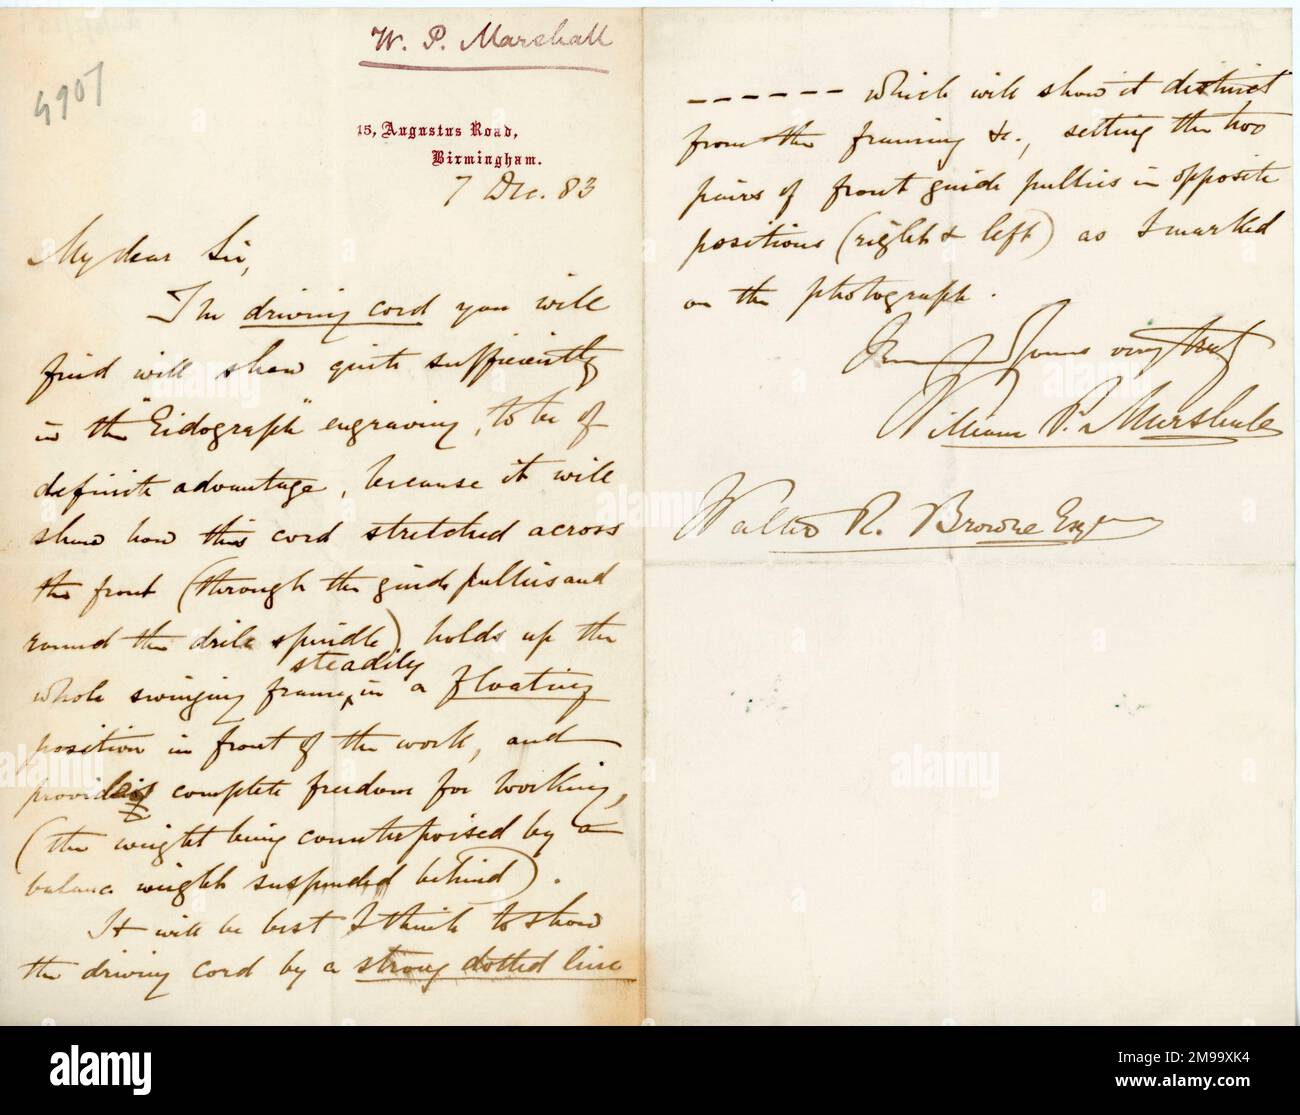 W. P. Marshall
4907
15, Augustus Road,
Birmingham.
7 Dec. 83
My dear Sir,
The driving cord you will
find will show quite sufficiently
in the "Eidograph" engraving, to be of
definite advantage, because it will
show how this cord stretched across
the front (through the guide pullies and
round the drill spindle) holds up the
steadily
whole swinging frame ‸ in a floating
position in front of the work, and
providing complete freedom for working,
(the weight being counterpoised by a
balance weight suspended behind).
It will be best I think to show
the driving cord by a strong dotted line
------ which will show it distinct
from the framing &c., setting the two
pairs of front guide pullies in opposite
positions (right & left) as I marked
on the photograph.
Yours very truly
William P. Marshall
Walter R. Browne Esq
alamy
Image ID: 2M99XK4
www.alamy.com